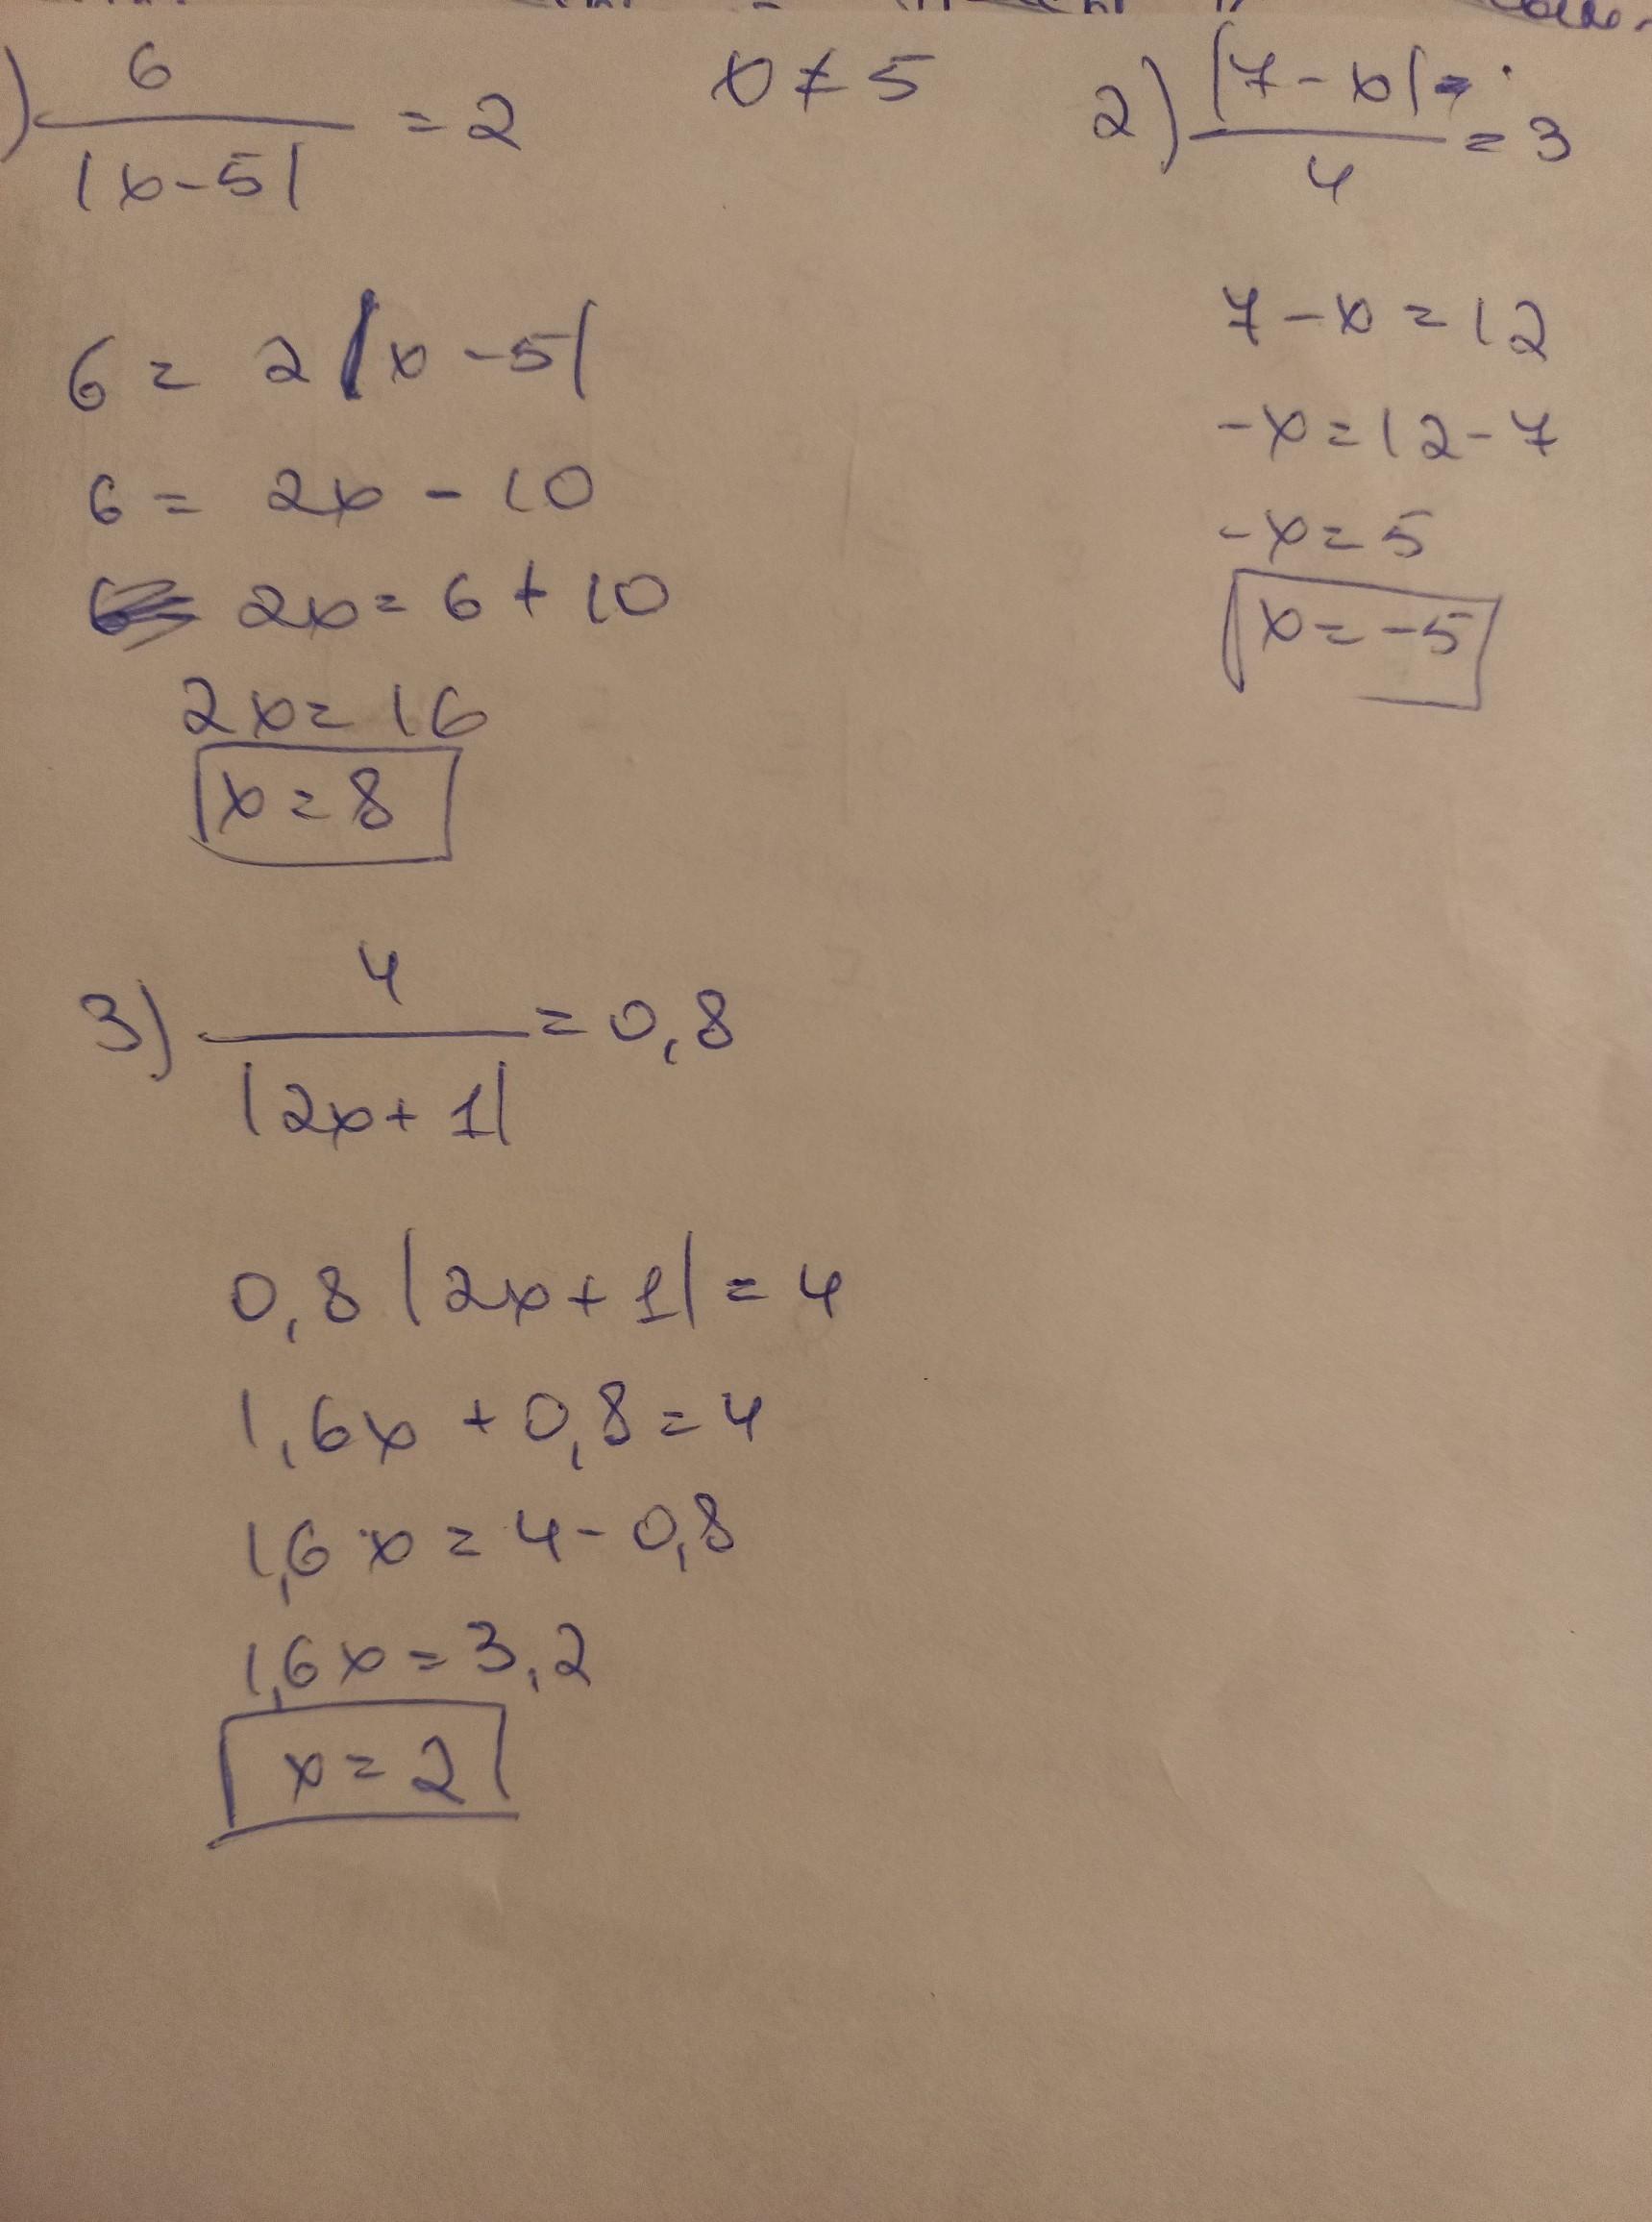 ) 6 / |x-5| = 2
x ≠ 5
6 = 2 |x-5|
6 = 2x - 10
2x = 6 + 10
2x = 16
x = 8
2) |7-x| / 4 = 3
7-x = 12
-x = 12-7
-x = 5
x = -5
3) 4 / |2x+1| = 0,8
0,8 |2x+1| = 4
1,6x + 0,8 = 4
1,6x = 4 - 0,8
1,6x = 3,2
x = 2